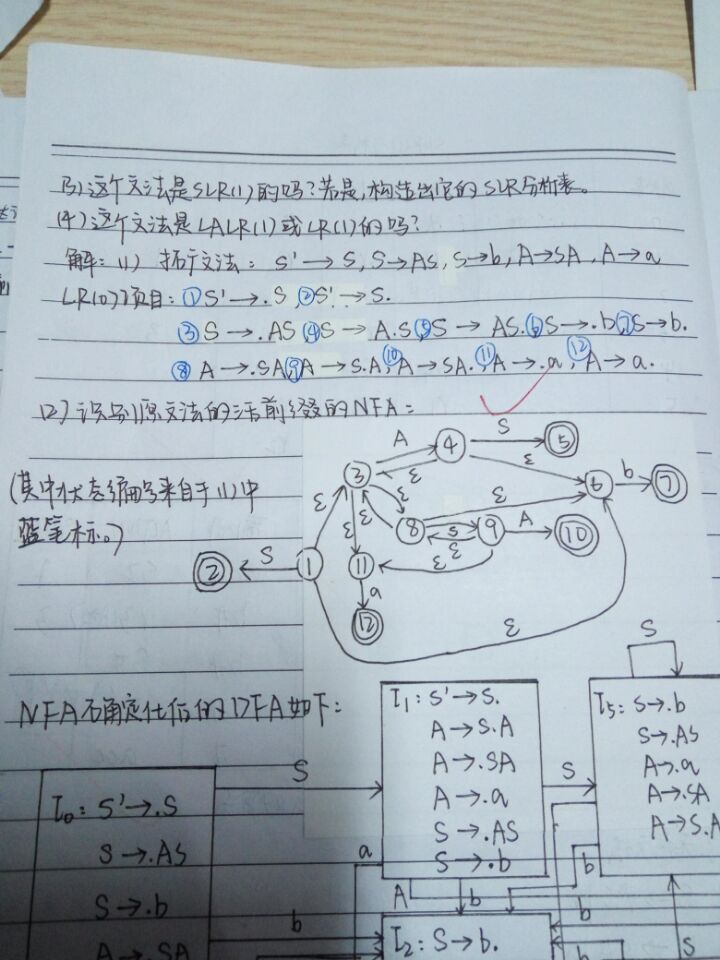 (3)这个文法是SLR(1)的吗?若是,构造出它的SLR分析表。
(4)这个文法是LALR(1)或LR(1)的吗?
解:(1) 拓广文法: S'→S, S→AS, S→b, A→SA, A→a
LR(0)项目: ①S'→.S ②S'→S.
③S→.AS ④S→A.S ⑤S→AS. ⑥S→.b ⑦S→b.
⑧A→.SA, ⑨A→S.A, ⑩A→SA. ⑪A→.a, ⑫A→a.
(2)识别原文法的活前缀的NFA:
(其中状态编号来自于(1)中
蓝笔标。)
A
④
S
⑤
ε
ε
③
⑥
b
⑦
ε
ε
ε
ε
ε
⑧
S
ε
⑨
A
⑩
②
S
①
⑪
ε
a
⑫
ε
NFA确定化后的DFA如下:
I₀: S'→.S
S→.AS
S→.b
A→.SA
S
I₁: S'→S.
A→S.A
A→.SA
A→.a
S→.AS
S→.b
S
S
I₅: S→.b
S→.AS
A→.a
A→.SA
A→S.A
a
A
b
b
b
b
I₂: S→b.
b
S